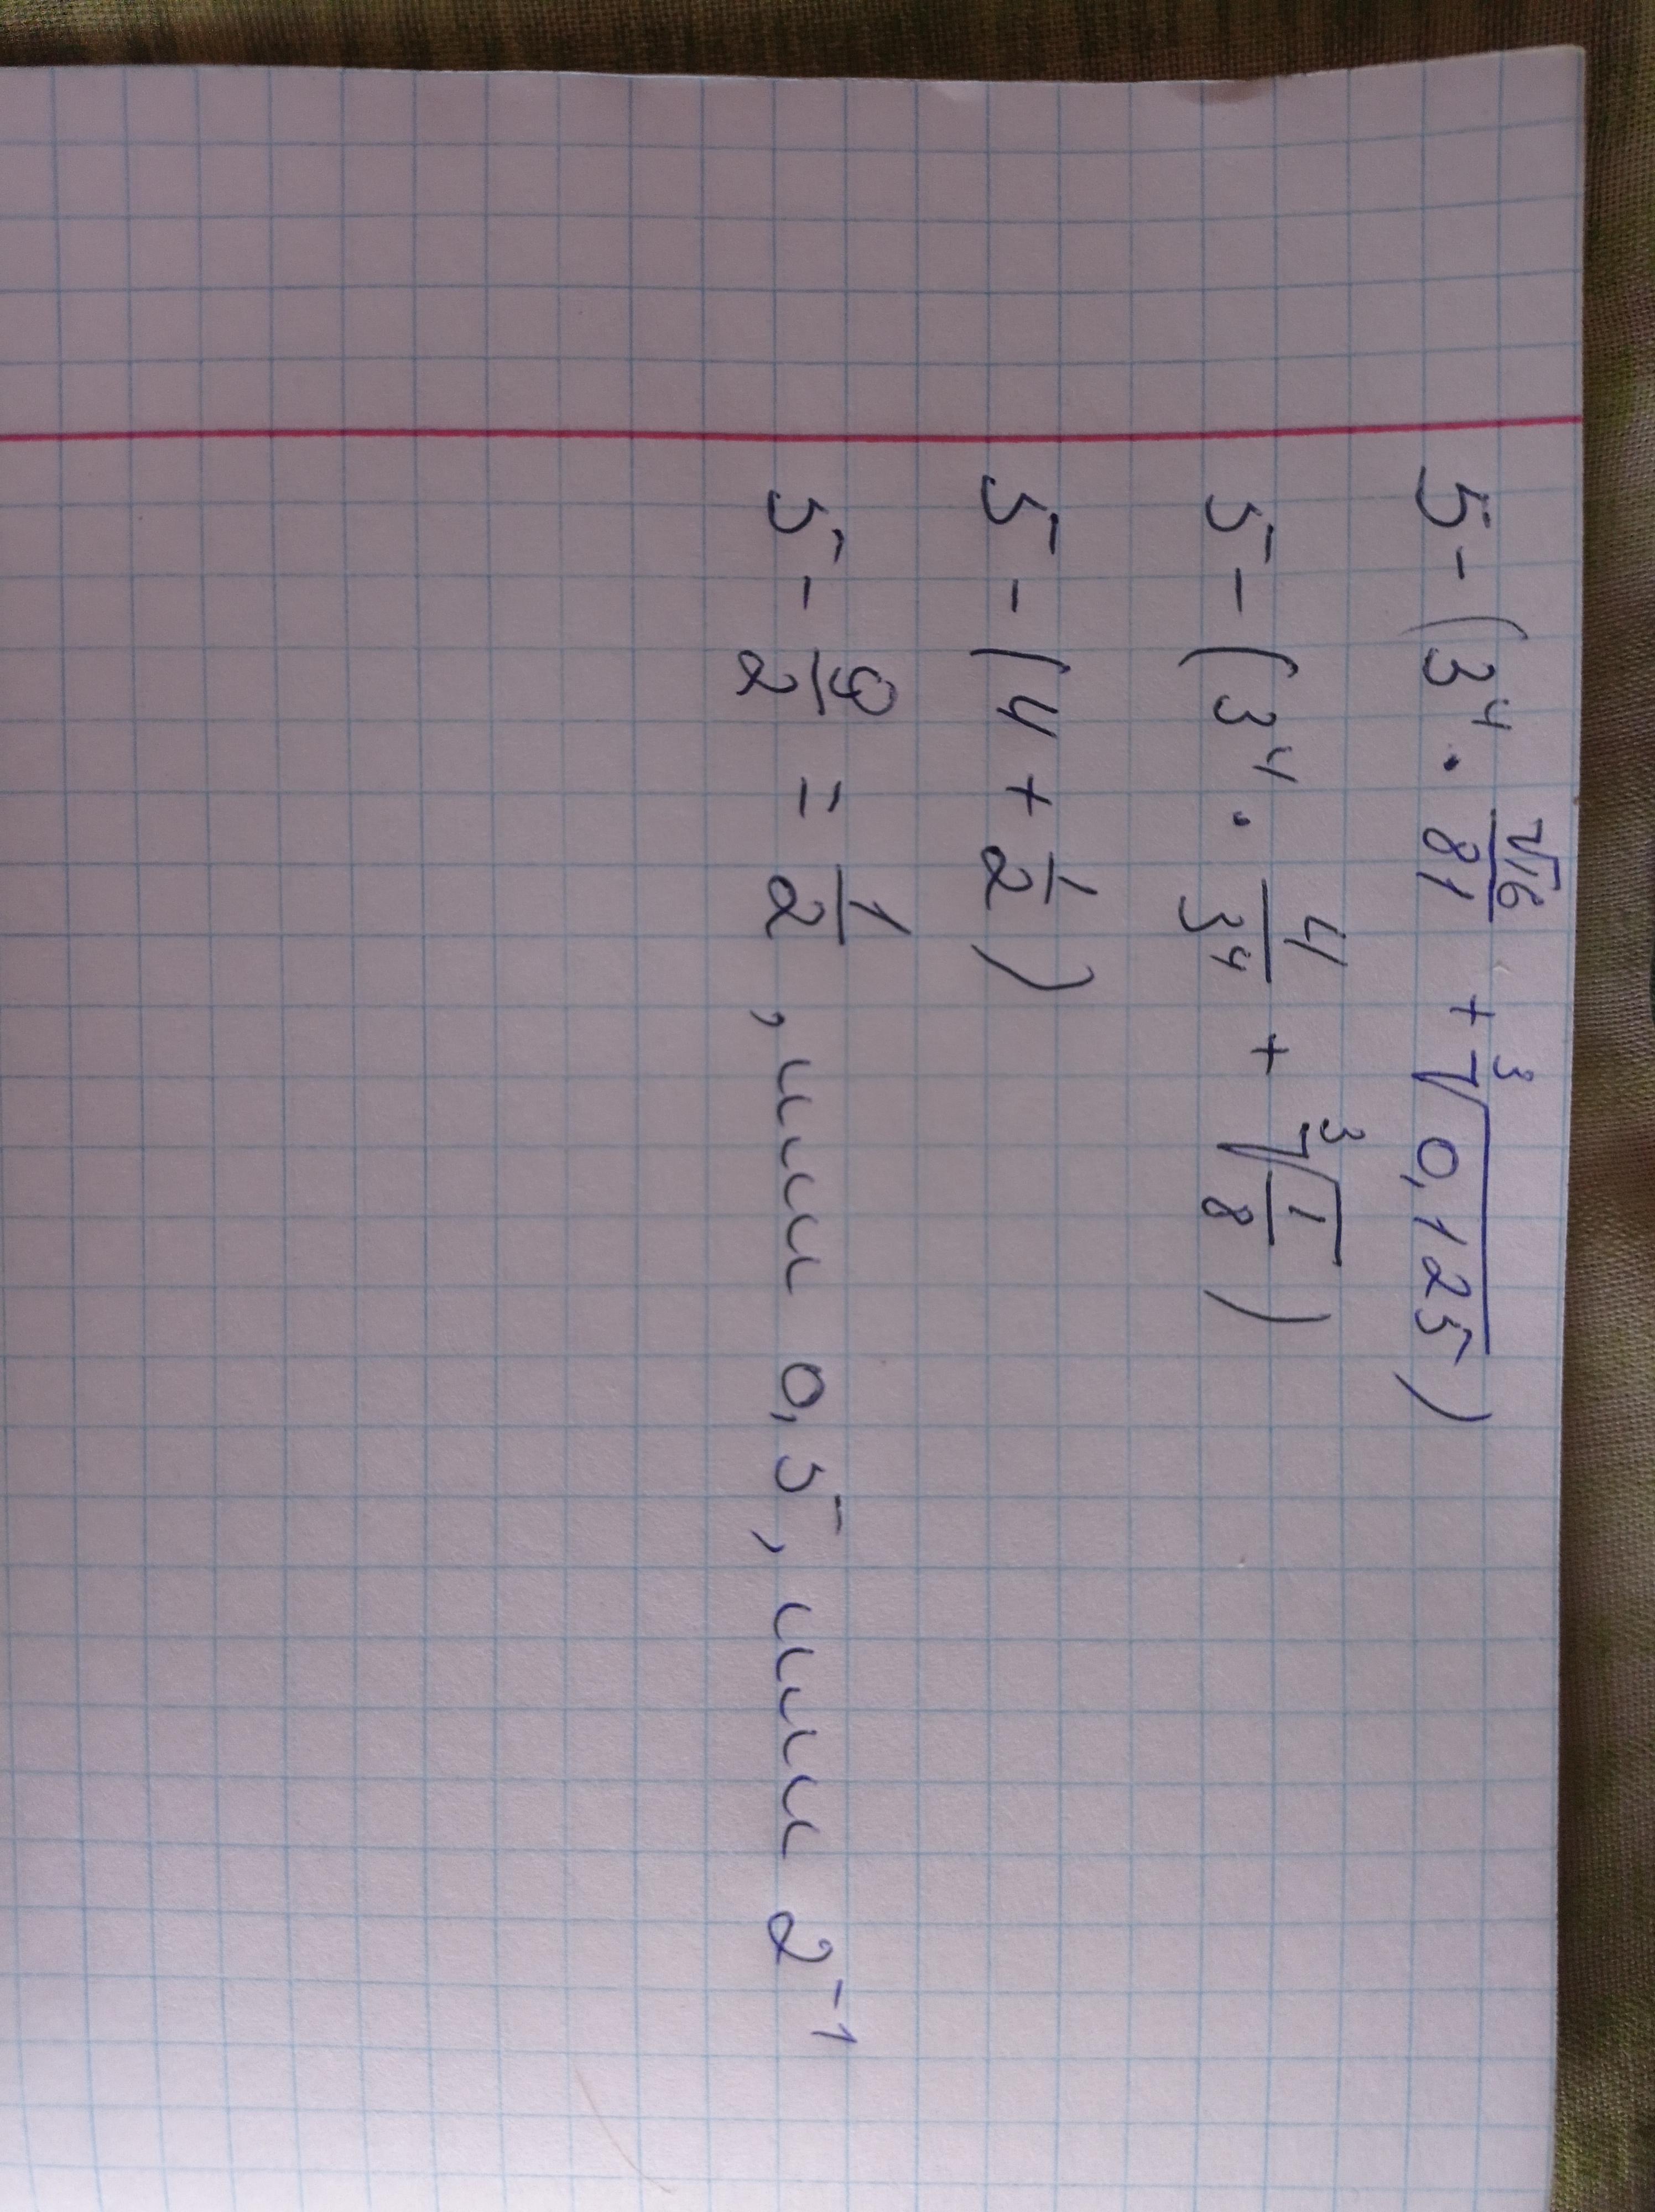 5 - (3⁴ · √16/81 + ³√0,125)
5 - (3⁴ · 4/3⁴ + ³√1/8)
5 - (4 + 1/2)
5 - 9/2 = 1/2, или 0,5, или 2⁻¹